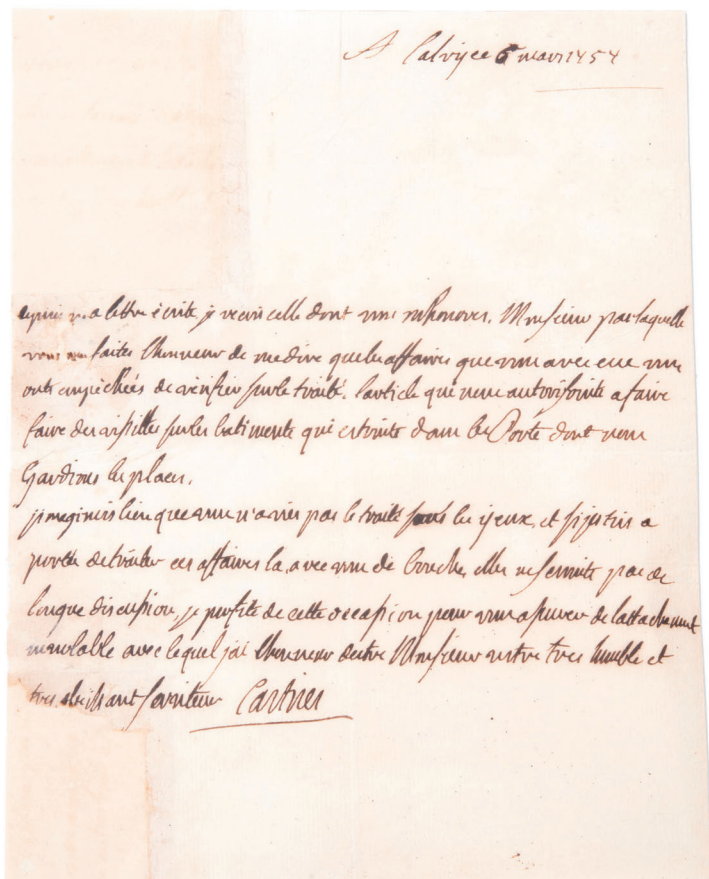 A Calvy ce 6 mars 1754
lettre écrite, je recois celle dont vous mhonores, Monsieur par laquelle
vous me faites lhonneur de me dire que les affaires que vous avec eue vous
ont empechées de verifier sur le traité, larticle qui nous autorisoit a faire
faire des visittes sur les batiments qui estoint dans les Ports dont nous
Gardions les places.
jmaginois bien que vous n'avies pas le traité sous les yeux, et si jestois a
portée de traiter ces affaires la, avec vous de bouche, elles ne seroint pas de
longue discusion, je profite de cette occasion pour vous asurer de lattachement
inviolable avec lequel jai lhonneur destre Monsieur vostre tres humble et
tres obeissant serviteur